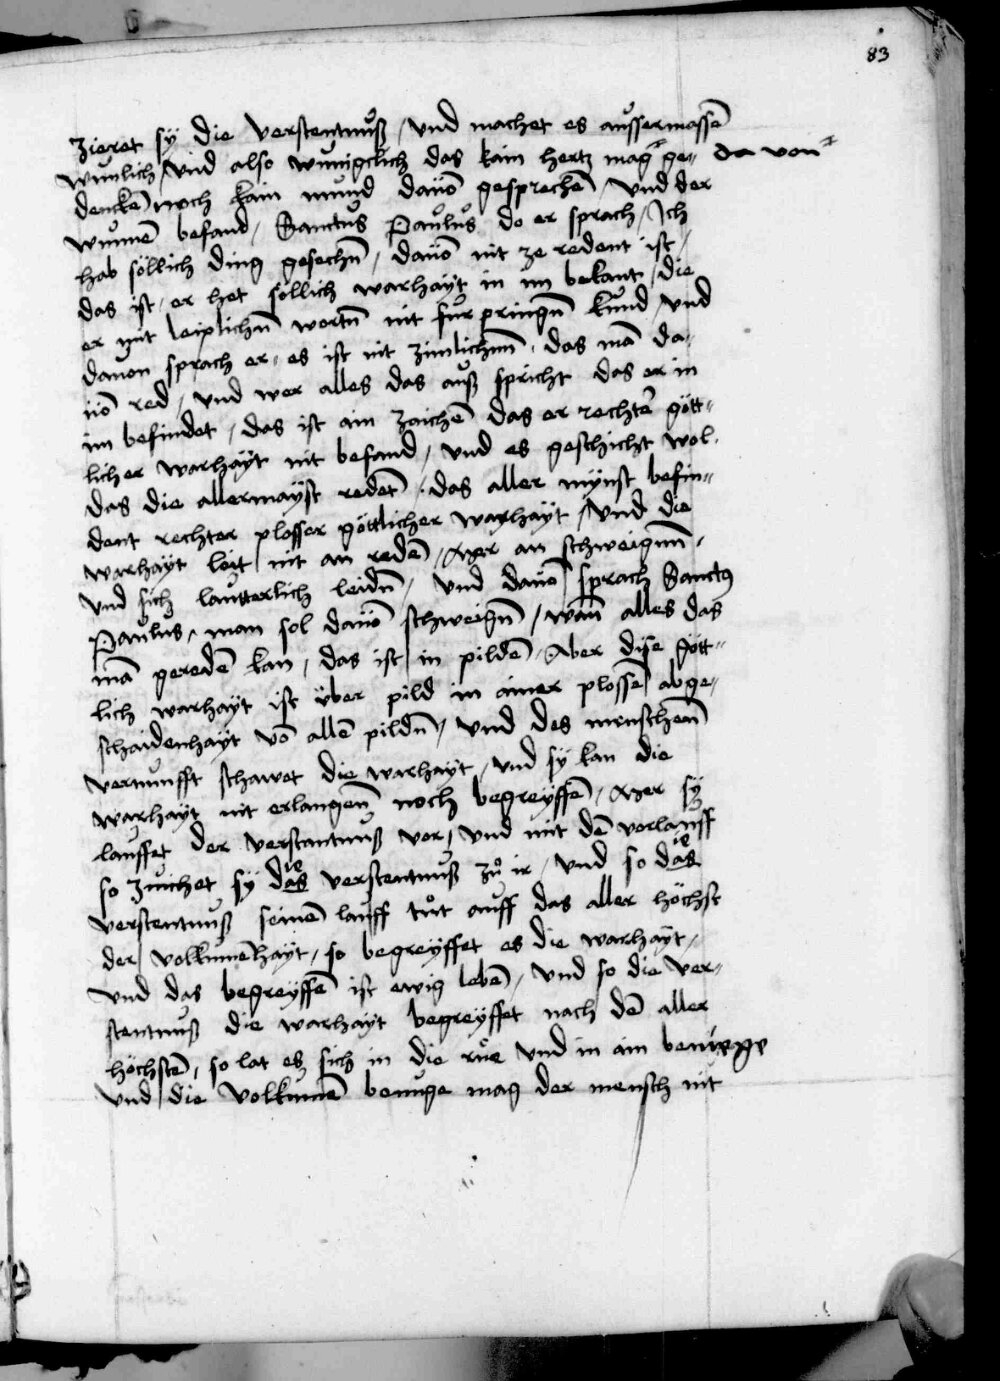 83
zieret sÿ die verstentnuß / vnd machet es aussermassē
wunlich / vnd also wunigklich das kain hertz mag ge- da von
denckē noch kain mund dauō gesprechē / vnd der
wunnē befand / Sanctus Paulus do er sprach / Ich
hab söllich ding gesechn̄ / dauō nit ze redent ist /
das ist / er het söllich warhaÿt in im bekant / die
er mit leiplichn̄ wortn̄ nit für pringn̄ kund / vnd
dauon sprach er / es ist nit zimlichnn̄ / das mā da-
uō red / vnd wer alles das auß spricht das er in
im befindet / das ist ain zaichē das er rechter gött-
licher warhaÿt nit befand / vnd es geschicht wol
das die allermaÿst redetē / das aller mÿnst befin-
dent rechter plosser göttlicher warhaÿt / vnd die
warhaÿt leit nit an redē / Aber an schweignn̄ /
vnd sich lautterlich leidn̄ / vnd dauō sprach Sanctus
Paulus / man sol dauō schweign̄ / wan̄ alles das
mā geredē kan / das ist in pildē / Aber dise gött-
lich warhaÿt ist über pild in ainer plossē abge-
schaidenhaÿt vō allē pildn̄ / vnd des menschenn̄
vernunfft schawet die warhaÿt / vnd sÿ kan die
warhaÿt nit erlangenn̄ noch begreÿffē / Aber sÿ
lauffet der verstantnuß vor / vnd mit dē vorlauff
so zuichet sÿ das ie verstentnuß zů ir / vnd so das ie
verstentnuß seinē lauff tůt auff das aller höchst
der volkumēhaÿt / so begreÿffet es die warhaÿt /
vnd das begreÿffē ist ewig lebē / vnd so die ver-
stentnuß die warhaÿt begreÿffet nach dē aller
höchstē / so lat es sich in die růe vnd in ain benuege
vnd die volkumē benuge mag der mensch nit